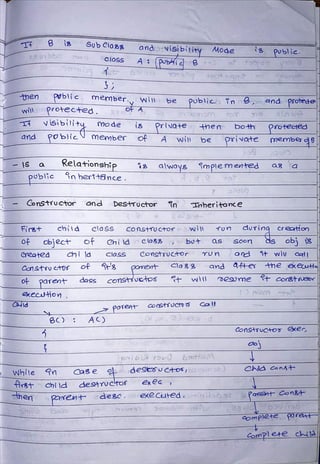 - If B is Sub Class and visibility Mode is public.
class A : public B
{
};
then public member of A will be public in B, and protected
will protected.
- If visibility mode is private then both protected
and public member of A will be private member of B
- is a Relationship is always implemented as a
public inheritance.
- Constructor and Destructor in Inheritance
First child class constructor will run during creation
of object of child class, but as soon as obj is
created child class constructor run and it will call
constructor of it's parent class and after the execution
of parent class constructor it will resume it constructor
execution.
Child
parent constructor call
B() : A()
{
}
Constructor exec.
obj
↓
child const
↓
parent const
↓
complete parent
↓
complete child
While in case of destructor,
first child destructor exec,
then parent desc. executed.